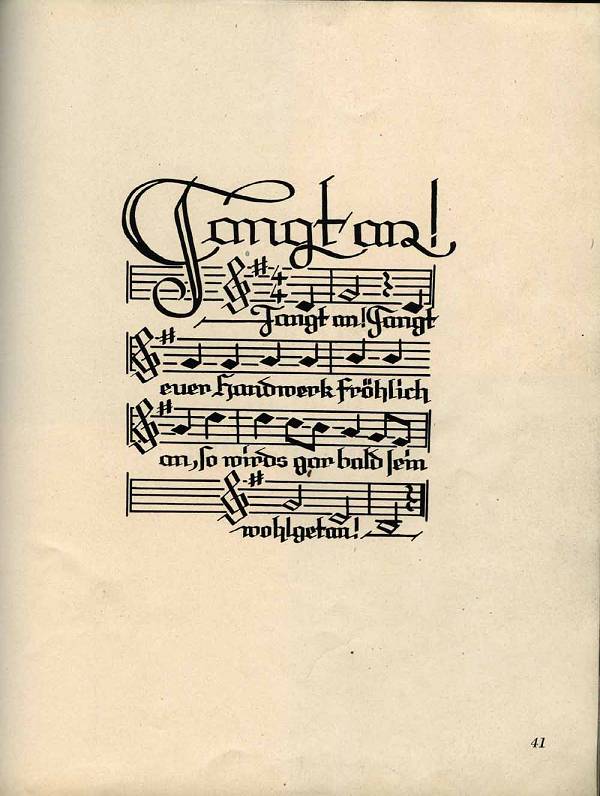 Fangt an!
4
4
Fangt an! Fangt
euer Handwerk fröhlich
an, so wirds gar bald sein
wohlgetan!
41